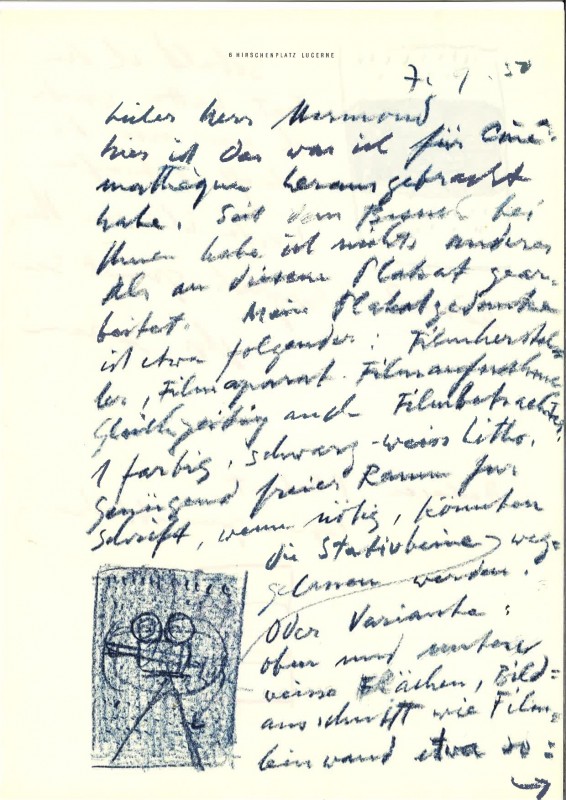 6 HIRSCHENPLATZ LUCERNE
7. 9. 50
Lieber Herr Mermoud
hier ist das was ich für Ciné-
mathèque herausgebracht
habe. Seit dem Besuch bei
Ihnen habe ich nichts anderes
als an diesem Plakat gear-
beitet. Meine Plakatgedanke
ist etwa folgender: Filmherstel=
ler, Filmaparat. Filmaufnahme
Gleichzeitig auch Filmbetrachter,
1 farbig, schwarz-weiss Litho.
Genügend freier Raum für
Schrift, wenn nötig, könnten
die Stativbeine weg=
gelassen werden.
Oder Variante:
oben und unten
weisse Flächen, Bild=
ausschnitt wie Film=
leinwand etwa so: